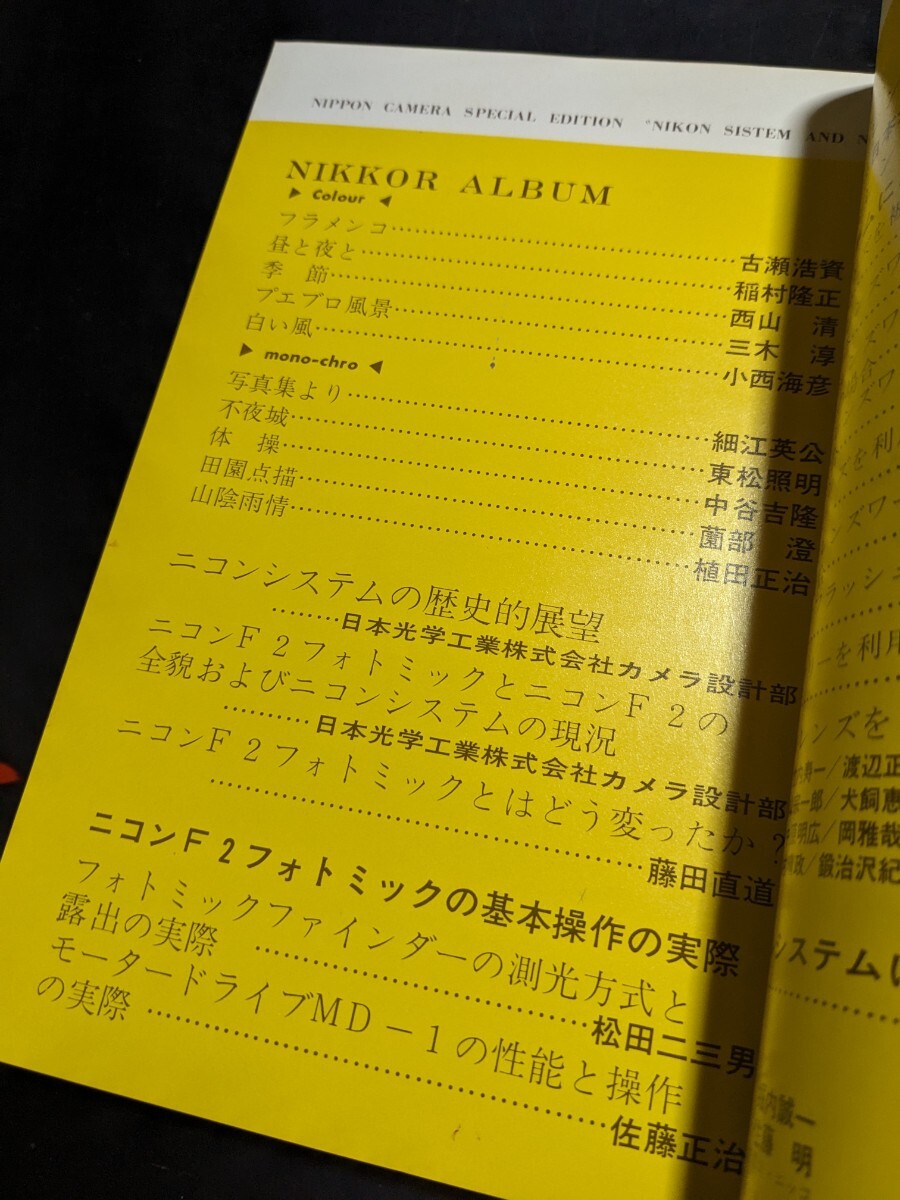 NIPPON CAMERA SPECIAL EDITION "NIKON SISTEM AND N
NIKKOR ALBUM
▶ Colour ◀
フラメンコ……………………古瀬浩資
昼と夜と……………………稲村隆正
季　節……………………西山　清
プエブロ風景……………………三木　淳
白い風……………………小西海彦
▶ mono-chro ◀
写真集より……………………細江英公
不夜城……………………東松照明
体　操……………………中谷吉隆
田園点描……………………薗部　澄
山陰雨情……………………植田正治
ニコンシステムの歴史的展望
………日本光学工業株式会社カメラ設計部
ニコンF２フォトミックとニコンF２の
全貌およびニコンシステムの現況
………日本光学工業株式会社カメラ設計部
ニコンF２フォトミックとはどう変ったか？
……………………藤田直道
ニコンF２フォトミックの基本操作の実際
フォトミックファインダーの測光方式と
露出の実際……………………松田二三男
モータードライブMD－１の性能と操作
の実際……………………佐藤正治
を利
ンズワー
ラッシュ
ーを利用
ンズを
渡辺正
一郎/犬飼恵
明広/岡雅哉
政/鍛治沢紀
システムに
内誠一
藤　明